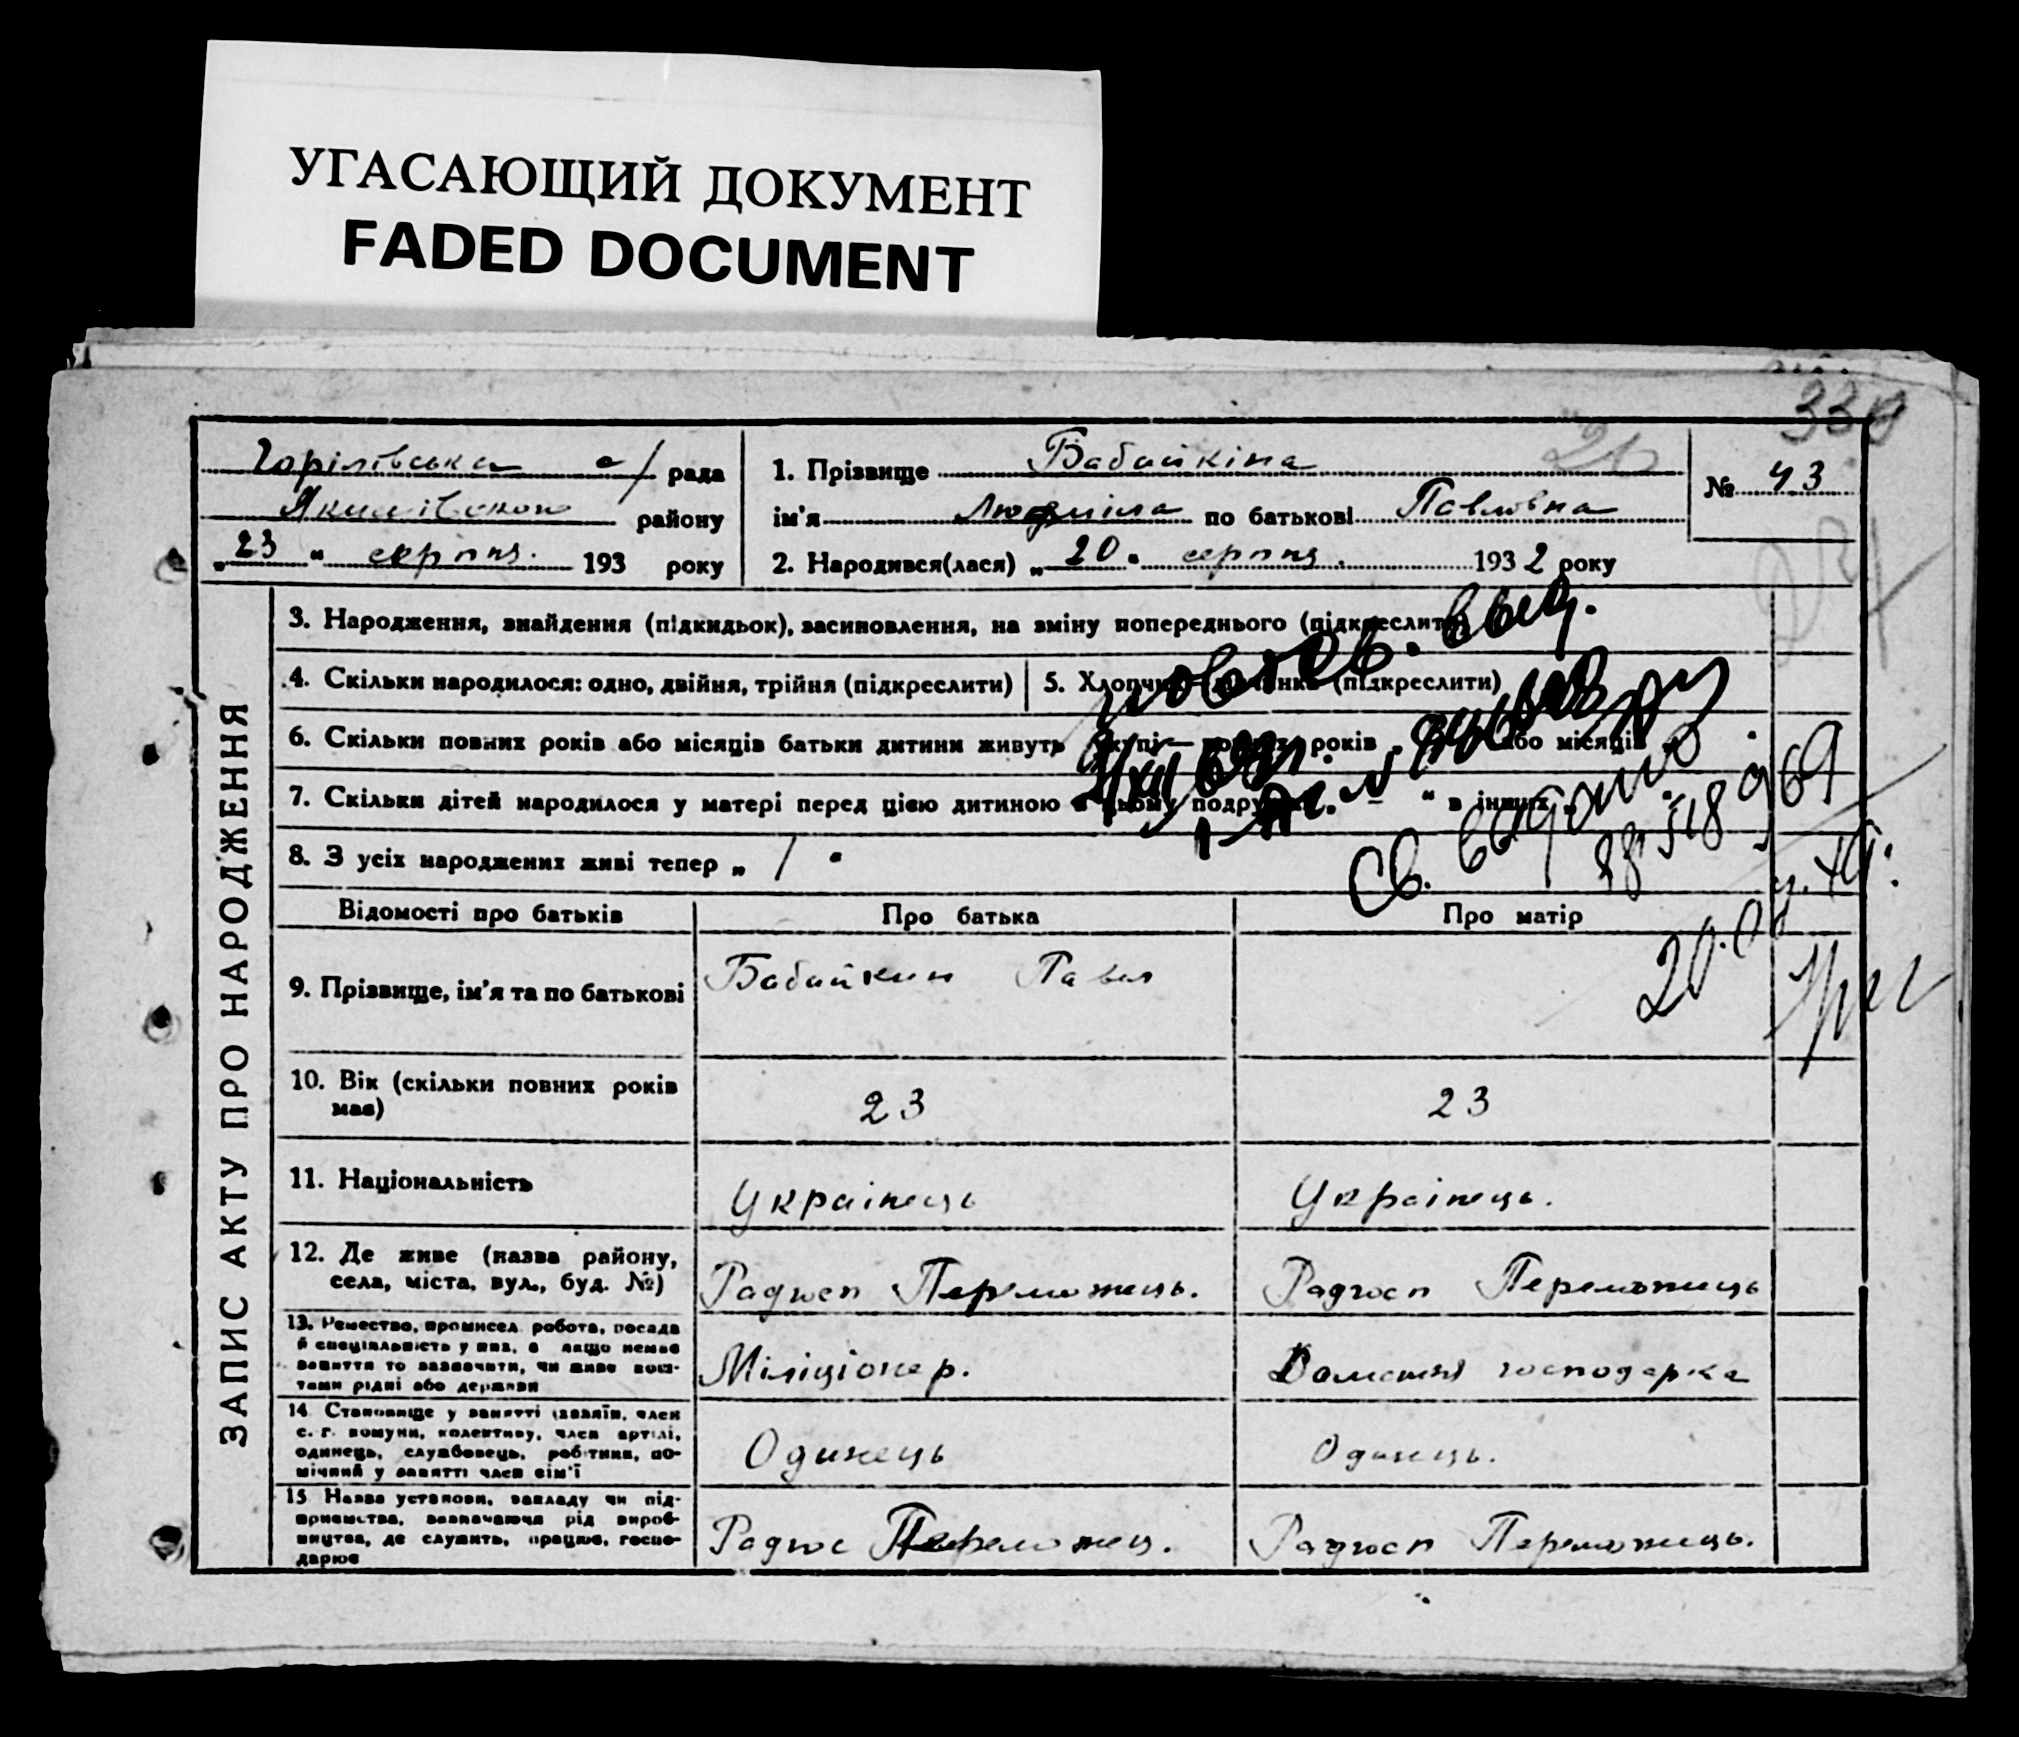 УГАСАЮЩИЙ ДОКУМЕНТ
FADED DOCUMENT
339
Горілівська с/рада
району
„23“ серпня. 193 року
1. Прізвище Бабайкіна
ім'я Людміла по батькові Павловна
2. Народився(лася) „20“ серпня. 1932 року
21
№ 43
ЗАПИС АКТУ ПРО НАРОДЖЕННЯ
3. Народження, знайдення (підкидьок), засиновлення, на зміну попереднього (підкреслити)
4. Скільки народилося: одно, двійня, трійня (підкреслити)
5. Хлопчик (підкреслити)
6. Скільки повних років або місяців батьки дитини живуть вкупі— років або місяців
7. Скільки дітей народилося у матері перед цією дитиною в цьому „ — “ в інших
8. З усіх народжених живі тепер „ 1 “
повтор. выд.
Св. выдано
20.08
Відомості про батьків
Про батька
Про матір
9. Прізвище, ім'я та по батькові
Бабайкин Павел
10. Вік (скільки повних років має)
23
23
11. Національність
Українець
Українець.
12. Де живе (назва району,
села, міста, вул., буд. №)
Радгосп Переможець.
Радгосп Переможець
13. Ремество, промисел, робота, посада
й спеціальність у них, а якщо немає
заняття то зазначити, чи живе кош-
тами рідні або держави
Міліціонер.
Домашня господарка
14. Становище у занятті (хазяїн, член
с.-г. комуни, колективу, член артілі,
одинець, службовець, робітник, по-
мічний у занятті член сім'ї
Одинець
Одинець.
15. Назва установи, закладу чи під-
приємства, зазначаючи рід вироб-
ництва, де служить, працює, госпо-
дарює
Радгос Переможец.
Радгосп Переможець.